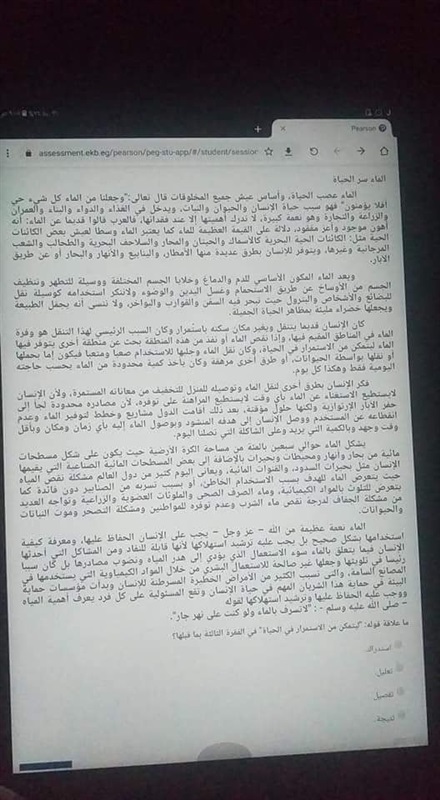 Pearson
assessment.ekb.eg/pearson/peg-stu-app/#/student/session
الماء سر الحياة
الماء عصب الحياة، وأساس عيش جميع المخلوقات قال تعالى:"وجعلنا من الماء كل شيء حي
أفلا يؤمنون" فهو سبب حياة الإنسان والحيوان والنبات، ويدخل في الغذاء والدواء والبناء والعمران
والزراعة والتجارة وهو نعمة كبيرة، لا ندرك أهميتها إلا عند فقدانها، فالعرب قالوا قديما عن الماء: أنه
أهون موجود وأعز مفقود، دلالة على القيمة العظيمة للماء كما يعتبر الماء وسطا لعيش بعض الكائنات
الحية مثل: الكائنات الحية البحرية كالأسماك والحيتان والمحار والسلاحف البحرية والطحالب والشعب
المرجانية وغيرها، ويتوفر للإنسان بطرق عديدة منها الأمطار، والينابيع والأنهار والبحار أو عن طريق
الآبار.
ويعد الماء المكون الأساسي للدم والدماغ وخلايا الجسم المختلفة ووسيلة للتطهر وتنظيف
الجسم من الأوساخ عن طريق الاستحمام وغسل اليدين والوضوء ولاننكر استخدامه كوسيلة نقل
للبضائع والأشخاص والبترول حيث تبحر فيه السفن والقوارب والبواخر، ولا ننسى أنه يجمل الطبيعة
ويجعلها خضراء مليئة بمظاهر الحياة الجميلة.
كان الإنسان قديما يتنقل ويغير مكان سكنه باستمرار وكان السبب الرئيسي لهذا التنقل هو وفرة
الماء في المناطق المقيم فيها، وإذا نقص الماء أو نفد من هذه المنطقة بحث عن منطقة أخرى يتوفر فيها
الماء ليتمكن من الاستمرار في الحياة، وكان نقل الماء وجلبها للاستخدام صعبا ومتعبا فيكون إما بحملها
أو نقلها بواسطة الحيوانات، أو طرق أخرى مرهقة وكان يأخذ كمية محدودة من الماء بحسب حاجته
اليومية فقط وهكذا كل يوم.
فكر الإنسان بطرق أخرى لنقل الماء وتوصيله للمنزل للتخفيف من معاناته المستمرة، ولأن الإنسان
لايستطيع الاستغناء عن الماء بأي وقت لايستطيع المراهنة على توفره، لأن مصادره محدودة لجأ إلى
حفر الآبار الارتوازية ولكنها حلول مؤقتة، بعد ذلك أقامت الدول مشاريع وخطط لتوفير الماء وعدم
انقطاعه عن المستخدم ووصل الإنسان إلى هدفه المنشود وبوصول الماء إليه بأي زمان ومكان وبأقل
وقت وجهد وبالكمية التي يريد وعلى الشاكلة التي تصلنا اليوم.
يشكل الماء حوالي سبعين بالمئة من مساحة الكرة الأرضية حيث يكون على شكل مسطحات
مائية من بحار وأنهار ومحيطات وبحيرات بالإضافة إلى بعض المسطحات المائية الصناعية التي يقيمها
الإنسان مثل بحيرات السدود، والقنوات المائية، ويعاني اليوم كثير من دول العالم مشكلة نقص المياه
حيث يتعرض الماء للهدف بسبب الاستخدام الخاطئ، أو بسبب تسربه من الصنابير دون فائدة كما
يتعرض للتلوث بالمواد الكيميائية، وماء الصرف الصحي والملوثات العضوية والزراعية ونواجه العديد
من مشكلة الجفاف لدرجة نقص ماء الشرب وعدم توفره للمواطنين ومشكلة التصحر وموت النباتات
والحيوانات.
الماء نعمة عظيمة من الله – عز وجل – يجب على الإنسان الحفاظ عليها، ومعرفة كيفية
استخدامها بشكل صحيح بل يجب عليه ترشيد استهلاكها لأنها قابلة للنفاد ومن المشاكل التي أحدثها
الإنسان فيما يتعلق بالماء سوء الاستعمال الذي يؤدي إلى هدر المياه ونضوب مصادرها بل كان سببا
رئيسا في تلويثها وجعلها غير صالحة للاستعمال البشري من خلال المواد الكيماوية التي يستخدمها في
المصانع السامة، والتي تسبب الكثير من الأمراض الخطيرة المسرطنة للإنسان وبدأت مؤسسات حماية
البيئة في حماية هذا الشريان المهم في حياة الإنسان وتقع المسئولية على كل فرد يعرف أهمية المياه
ووجب عليه الحفاظ عليها وترشيد استهلاكها لقوله
– صلى الله عليه وسلم - : "لاتسرف بالماء ولو كنت على نهر جار".
ما علاقة قوله: "ليتمكن من الاستمرار في الحياة" في الفقرة الثالثة بما قبلها؟
استدراك.
تعليل.
تفصيل
نتيجة.